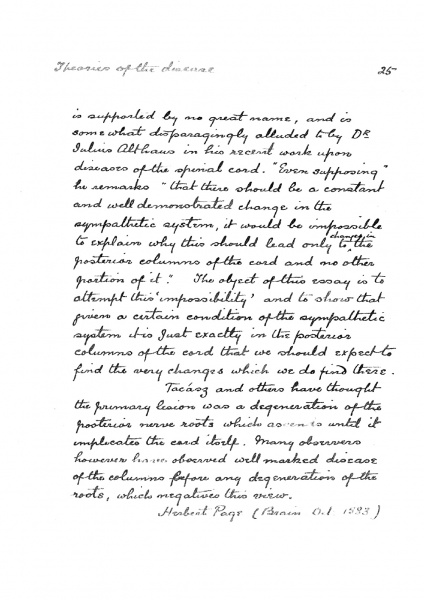 Theories of the disease 25
is supported by no great name, and is
somewhat disparagingly alluded to by Dr
Julius Althaus in his recent work upon
diseases of the spinal cord. "Even supposing"
he remarks "that there should be a constant
and well demonstrated change in the
sympathetic system, it would be impossible
to explain why this should lead only to changes in the
posterior columns of the cord and no other
portion of it." The object of this essay is to
attempt this 'impossibility' and to show that
given a certain condition of the sympathetic
system it is just exactly in the posterior
columns of the cord that we should expect to
find the very changes which we do find there.
Tacász and others have thought
the primary lesion was a degeneration of the
posterior nerve roots which ascends until it
implicates the cord itself. Many observers
however have observed well marked disease
of the columns before any degeneration of the
roots, which negatives this view.
Herbert Page (Brain Oct 1883)